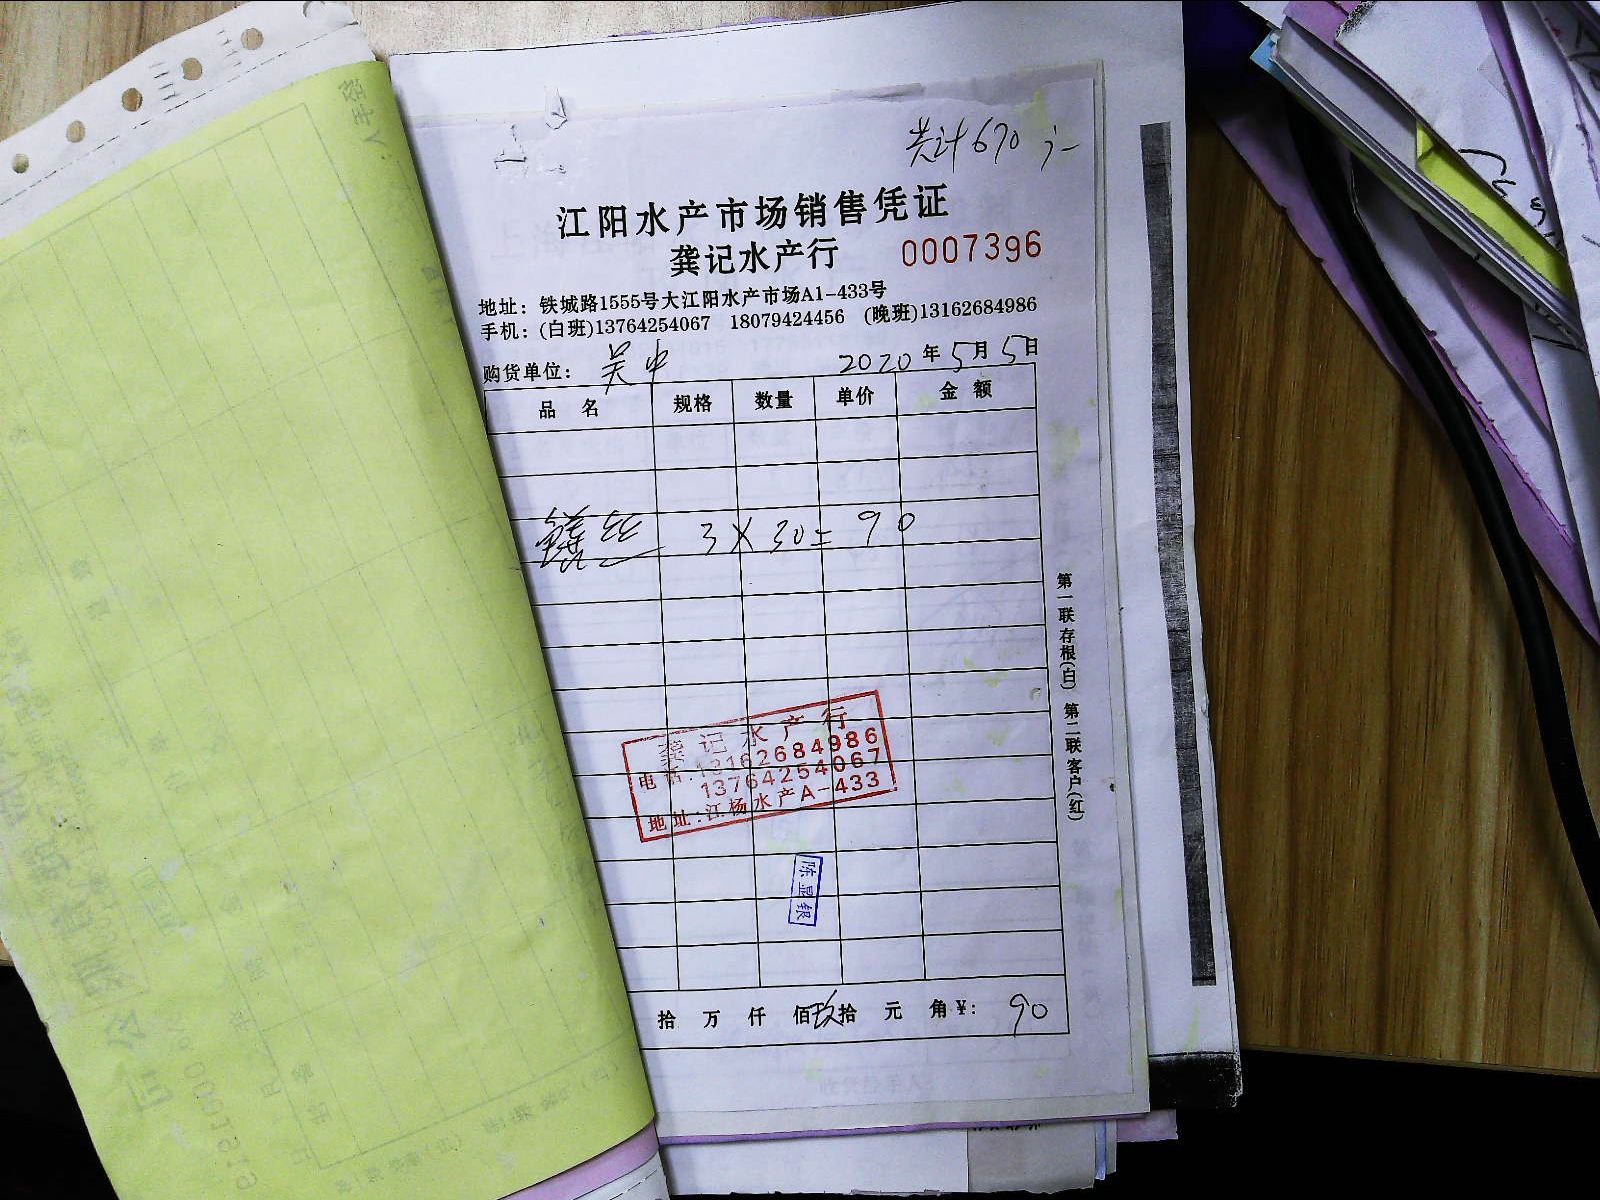 共计670元
江阳水产市场销售凭证
龚记水产行 0007396
地址：铁城路1555号大江阳水产市场A1-433号
手机：(白班)13764254067 18079424456 (晚班)13162684986
购货单位： 吴中 2020年5月5日
品名 规格 数量 单价 金额
鳝丝 3×30=90
龚记水产行
电话：13162684986
13764254067
地址：江杨水产A-433
陈显银
拾 万 仟 佰 玖拾 元 角 ¥： 90
第一联存根(白) 第二联客户(红)